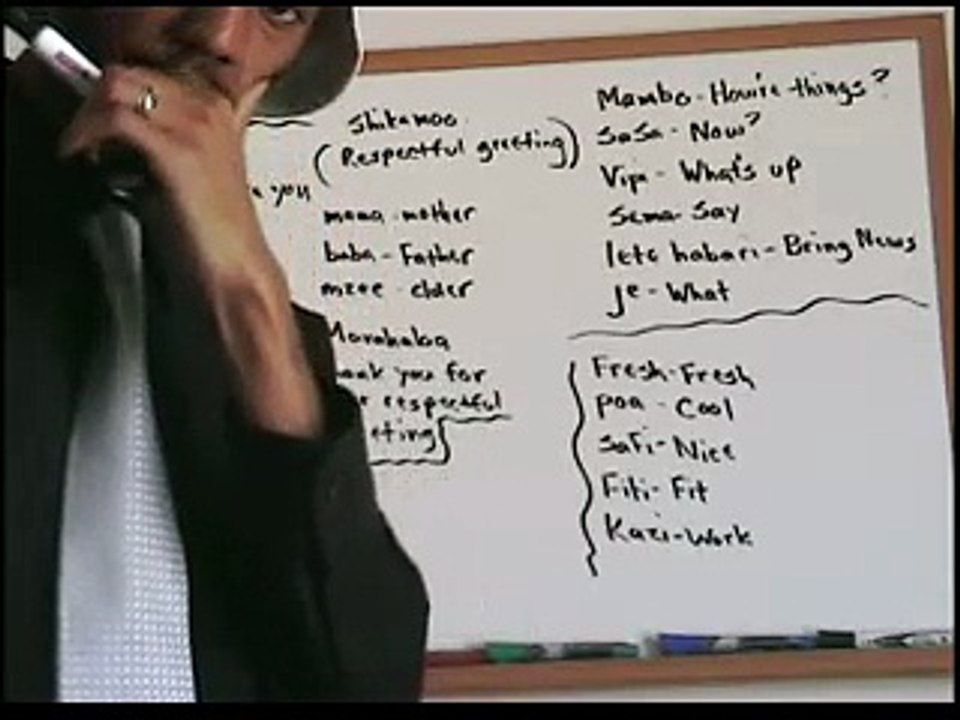 you
Shikamoo
(Respectful greeting)
mama - mother
baba - Father
mzee - elder
Marahaba
ank you for
respectful
eting
Mambo - How're things?
SaSa - Now?
Vipi - What's up
Sema - Say
lete habari - Bring News
Je - What
Fresh - Fresh
Poa - Cool
Safi - Nice
Fiti - Fit
Kazi - Work